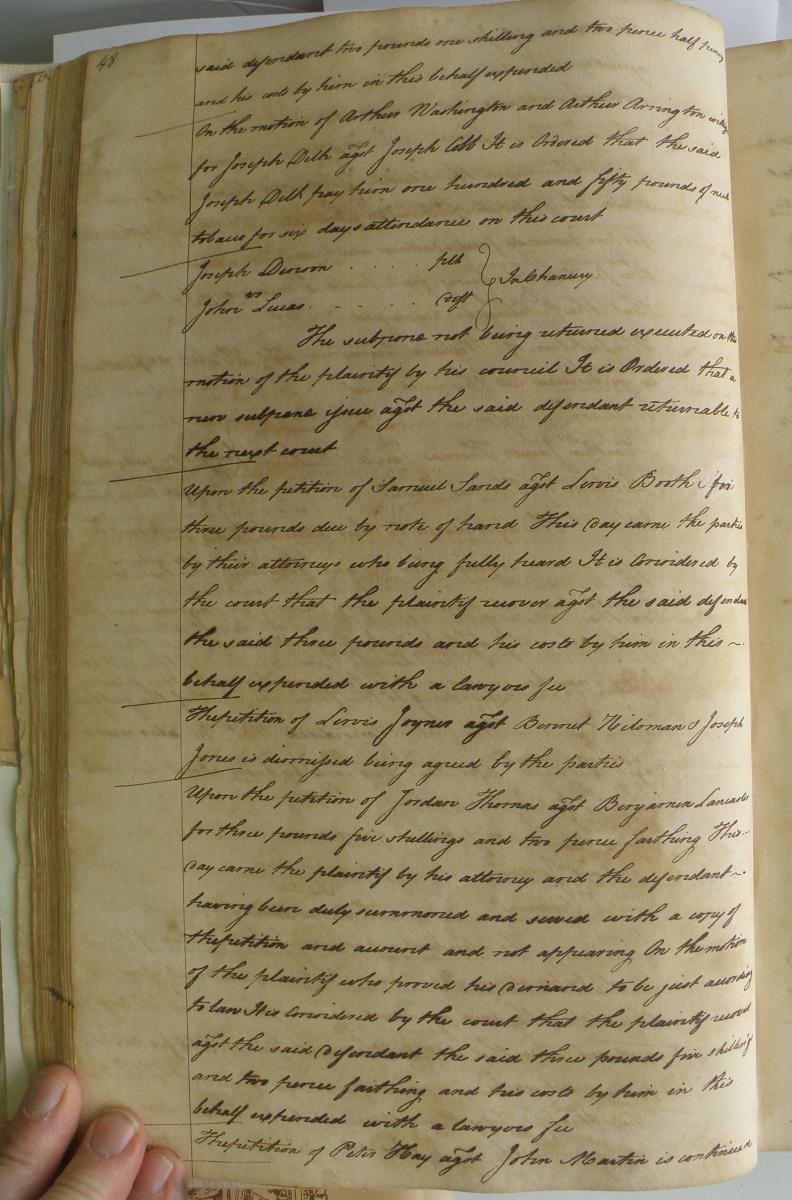 48
said defendant two pounds one shilling and two pence half penny
and his costs by him in this behalf expended
On the motion of Arthur Washington and Arthur Arrington
for Joseph Delk agst Joseph Cobb It is Ordered that the said
Joseph Delk pay him one hundred and fifty pounds of nett
tobacco for six days attendance on this court
Joseph Dewon . . . . . plt
vs } In Chancery
John Lucas . . . . . deft
The subpona not being returned executed on the
motion of the plaintif by his council It is Ordered that a
new subpona issue agst the said defendant returnable to
the next court
Upon the petition of Samuel Sands agst Lewis Booth for
three pounds due by note of hand This day came the parties
by their attorneys who being fully heard It is Considered by
the court that the plaintif recover agst the said defendant
the said three pounds and his costs by him in this
behalf expended with a lawyers fee
The petition of Lewis Joyner agst Bennet Hilsman & Joseph
Jones is dismissed being agreed by the parties
Upon the petition of Jordan Thomas agst Benjamin Lancaster
for three pounds five shillings and two pence farthing This
day came the plaintif by his attorney and the defendant
having been duly summoned and served with a copy of
the petition and account and not appearing On the motion
of the plaintif who proved his demand to be just according
to law It is Considered by the court that the plaintif recover
agst the said defendant the said three pounds five shillings
and two pence farthing and his costs by him in this
behalf expended with a lawyers fee
The petition of Peter Hay agst John Martin is continued